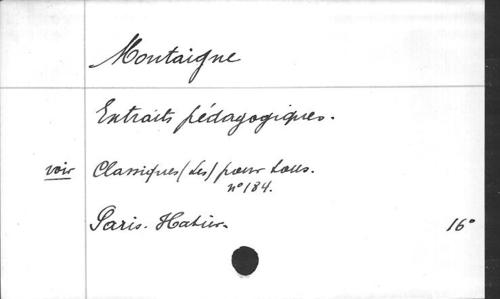 Montaigne
Extraits pédagogiques.
voir Classiques (Les) pour tous.
n° 184.
Paris. Hatier. 16°